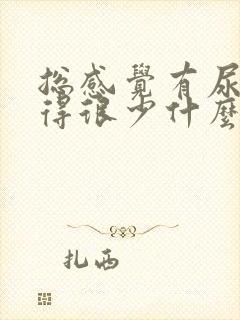 總感覺有尿
得很少什麼
扎西